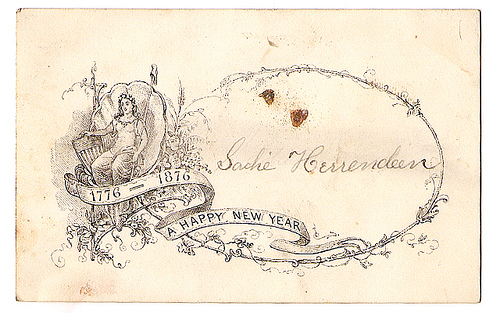 Sadie Herrendeen
1776 — 1876
A HAPPY NEW YEAR